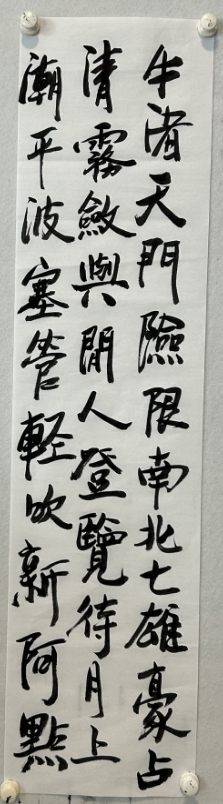 牛渚天門險限南北七雄豪占
清霧斂與閒人登覽待月上
潮平波塞管軽吹新阿點